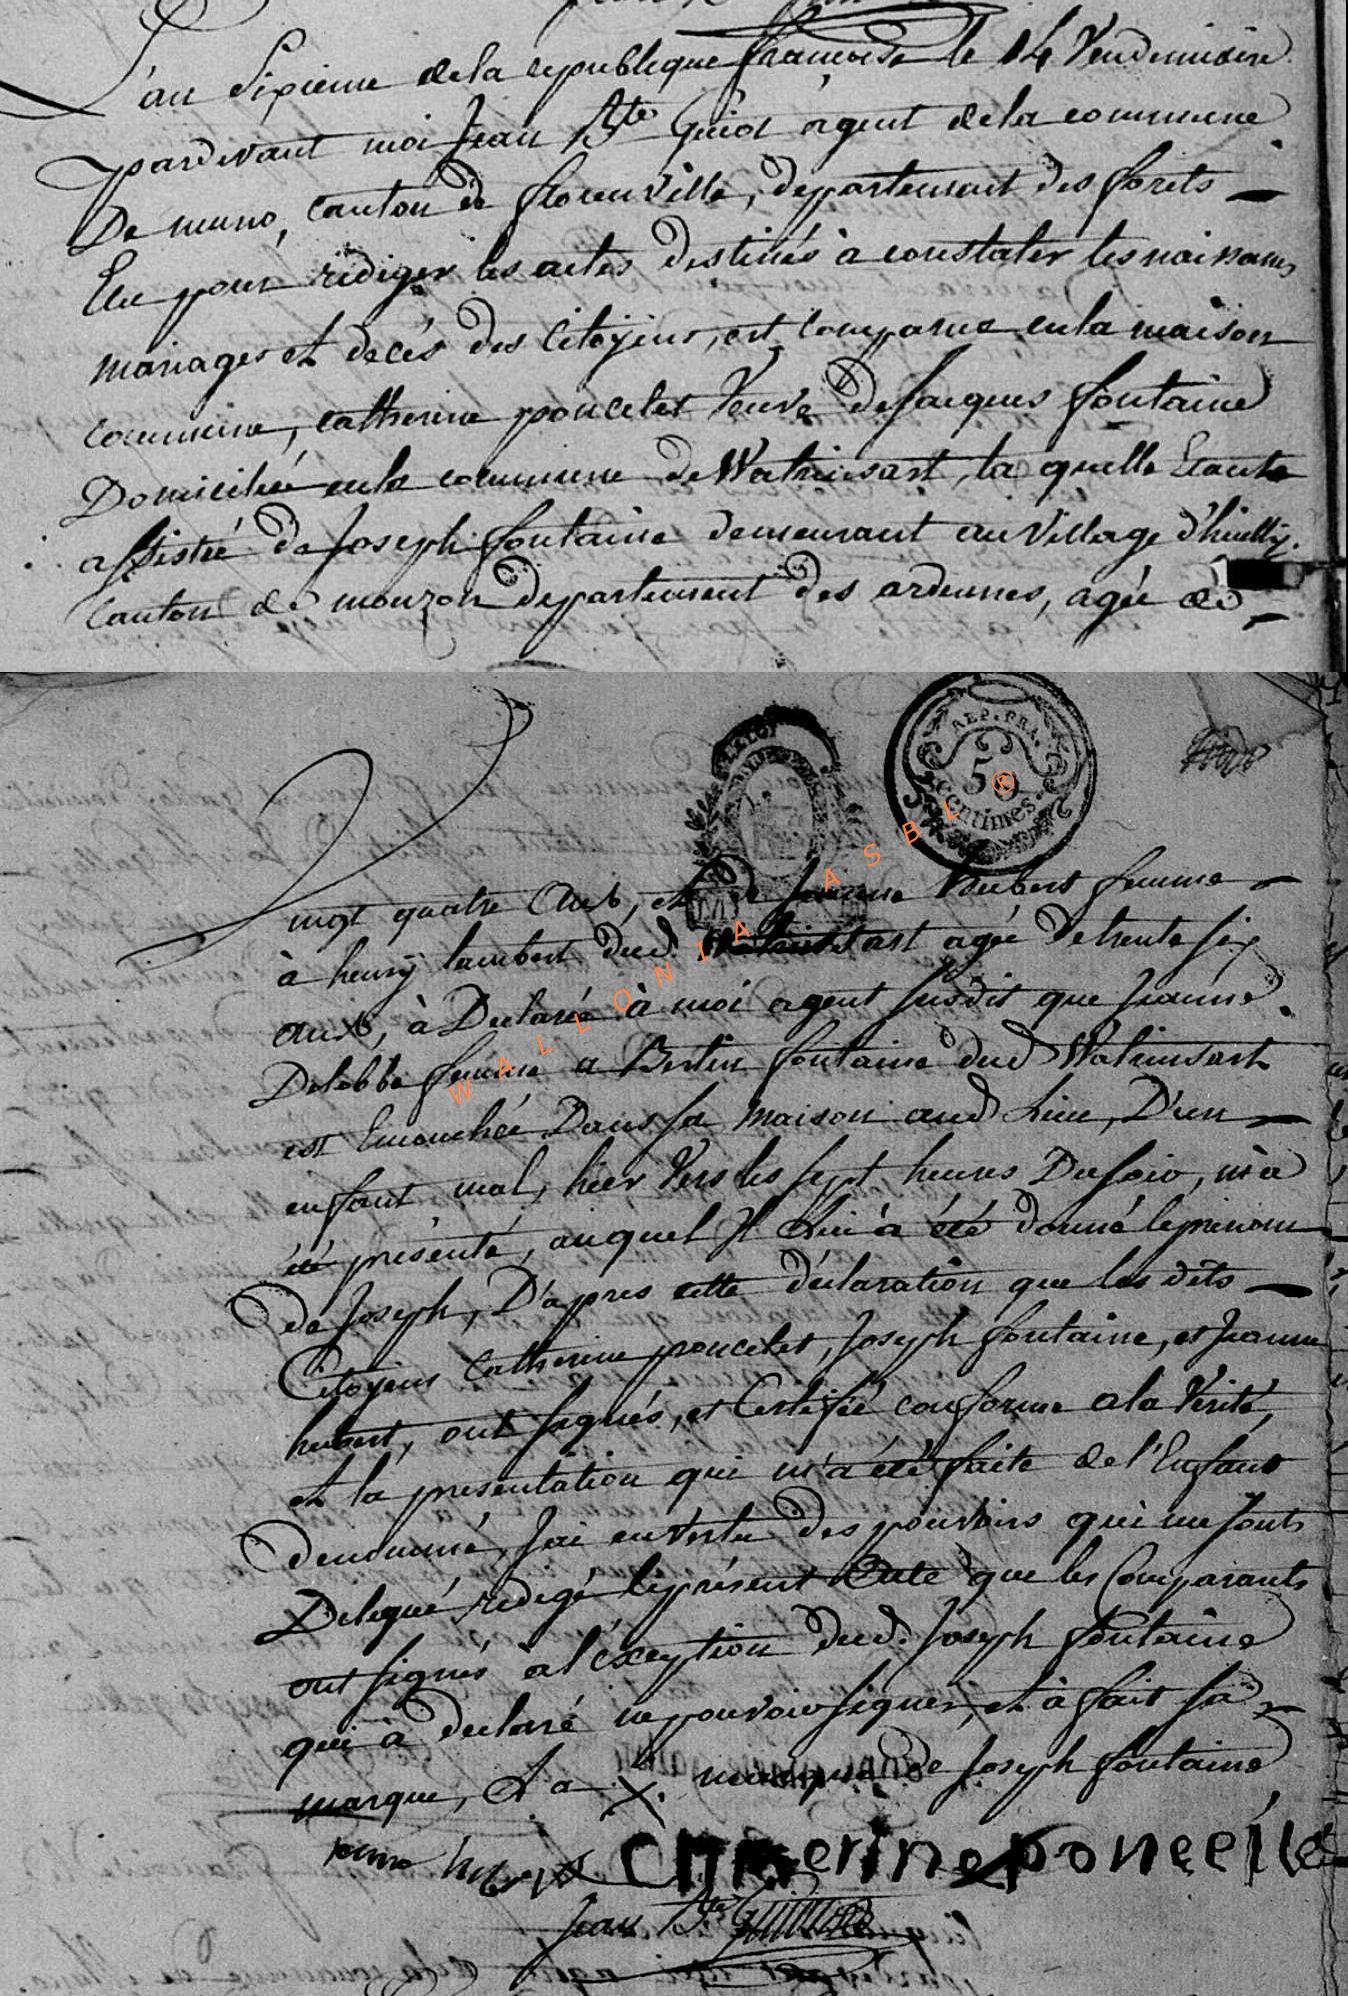 L'an Sixieme de la republique francoise le 14 Vendemiaire
pardevant moi Jean Bte Guiot agent de la commune
De muno, canton de florenville, departement des forets
Elu pour rediger les actes destinés à constater les naissances
mariages et decés des Citoÿens, est comparue en la maison
commune, catherine poncelet Veuve de Jacques fontaine
Domiciliée en la commune de Watrinsart, la quelle Etante
assistée de Joseph fontaine demeurant au village d'huilly
canton de mouzon departement des ardennes, agée de
REP. FRA.
50
centimes.
Vingt quatre ans, et de Jeanne hubert femme
à henrÿ lambert dud. Watrinsart agée de trente six
ans, à Declaré à moi agent susdit que Jeanne
Delobbe femme a Bertin fontaine dud Watrinsart
est Ecouchée Dans sa maison aud Lieu, D'un
enfant mal, hier Vers les sept heures Du soir, m'a
été présenté, auquel Il Lui a été donné le prenom
de Joseph, D'apres cette déclaration que les dits
Citoÿens Catherine poncelet, Joseph fontaine, et Jeanne
hubert, ont signés, et Certifié conforme a la Vérité,
et la presentation qui m'a été faite de l'Enfant
denommé, J'ai en vertu des pouvoirs qui me sont
Delegué redigé le présent Acte que les Comparants
ont signés à l'éxception dud. Joseph fontaine
qui à declaré ne pouvoir signer, et à fait sa
marque, La X. marque de Joseph fontaine
hubert catherine ponceelle
Jean Bte
WALLONIA ASBL ®